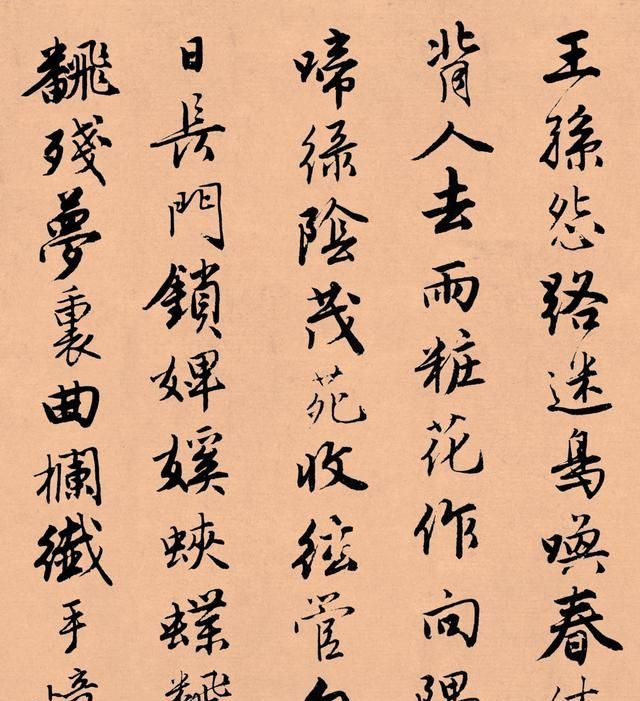 王孫怨路迷鳥喚春
背人去雨粧花作向隅
啼綠陰茂苑收絃管
日長門鎖婢㜎蛺蝶飜
飜殘夢裏曲欄纖手憶